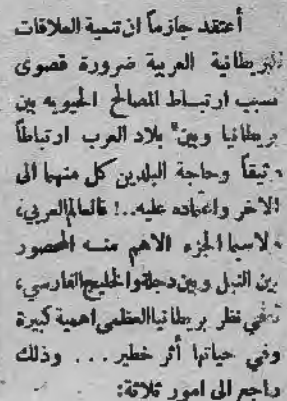 أعتقد جازماً ان تنمية العلاقات
البريطانية العربية ضرورة قصوى
بسبب ارتباط المصالح الحيويه بين
بريطانيا وبين بلاد العرب ارتباطاً
وثيقاً وحاجة البلدين كل منهما الى
الاخر واعتماده عليه..! فالعالم العربي،
ولاسيما الجزء الاهم منه المحصور
بين النيل وبين دجلة والخليج الفارسي،
في نظر بريطانيا العظمى اهمية كبيرة
وفي حياتها أثر خطير... وذلك
راجع الى امور ثلاثة: